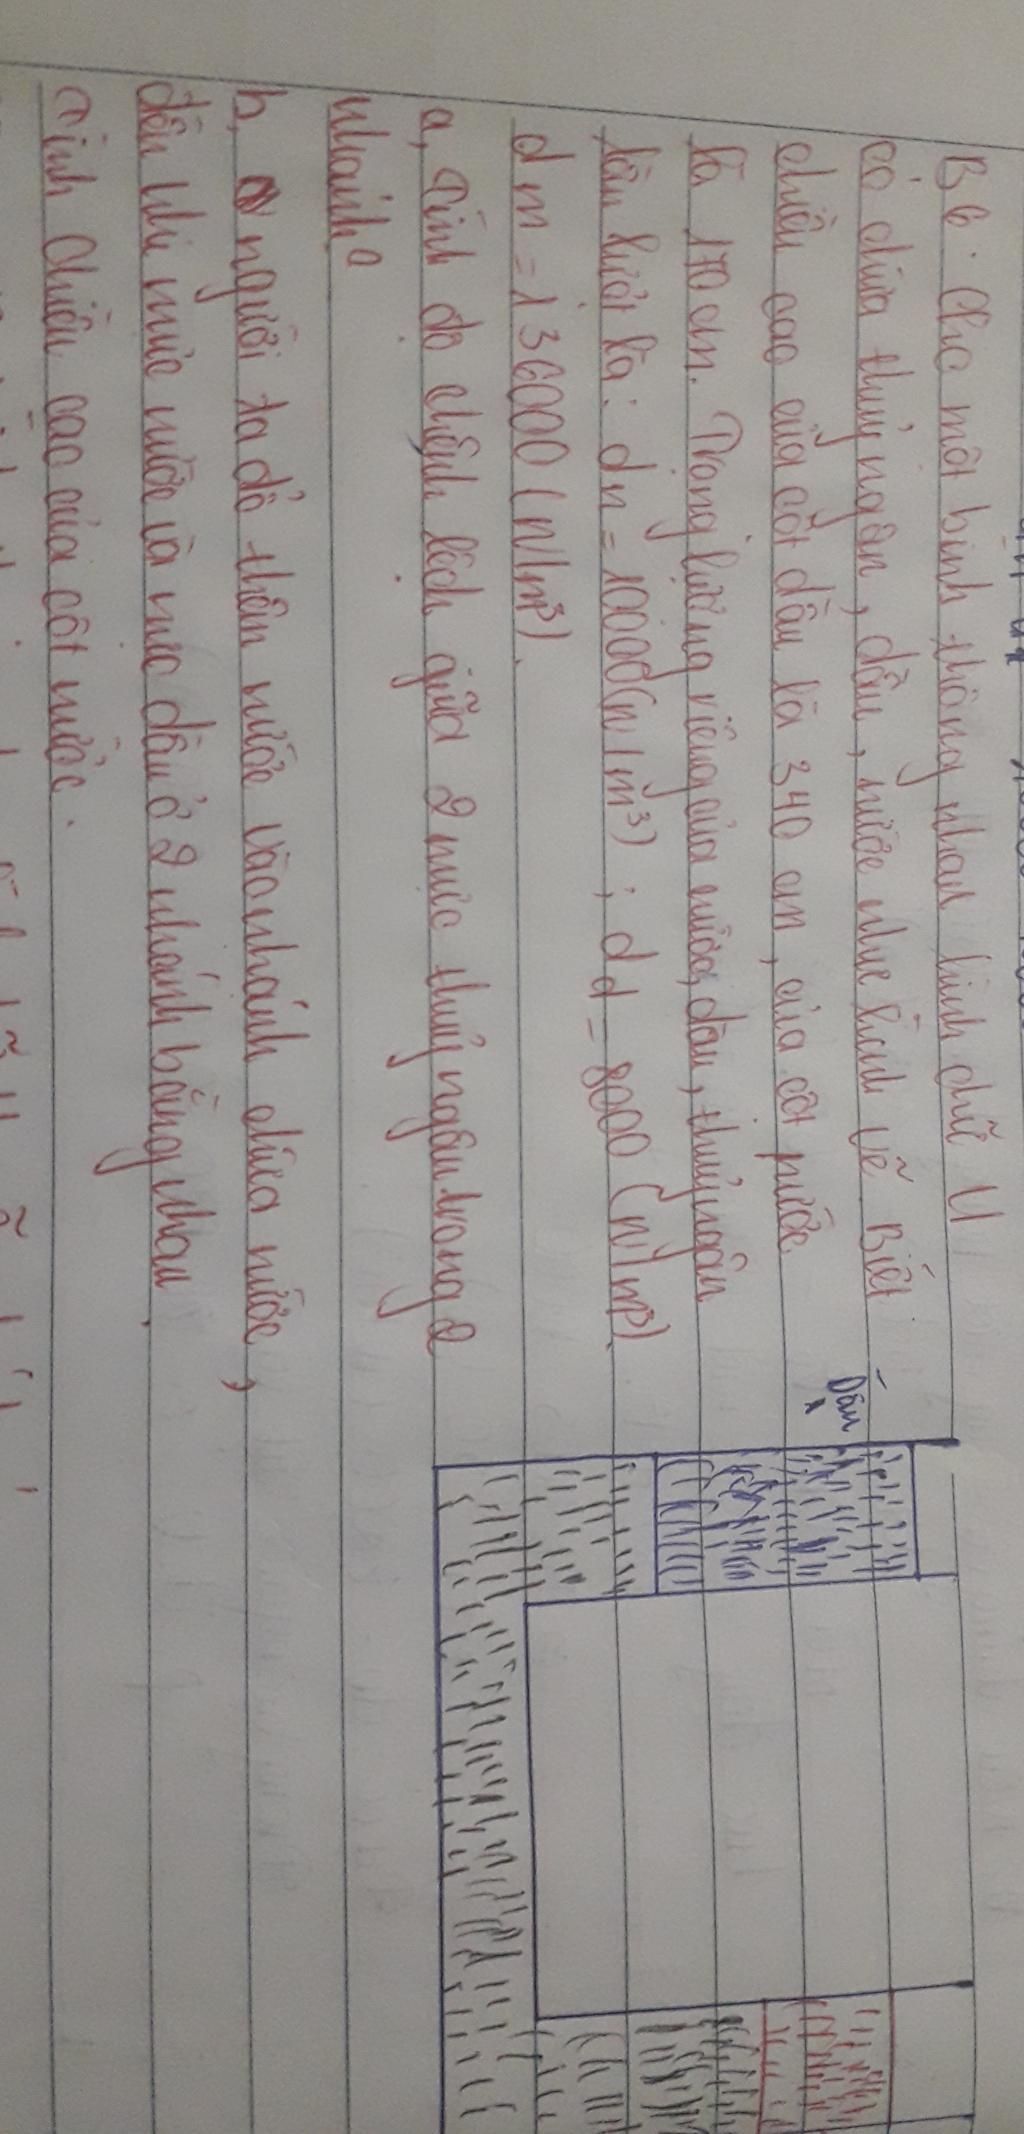 B6. Cho một bình thông nhau hình chữ U
có chứa thuỷ ngân, dầu, nước như hình vẽ Biết
chiều cao của cột dầu là 340 cm, của cột nước
là 170 cm. Trọng lượng riêng của nước, dầu, thuỷ ngân
lần lượt là: dn = 10000(n/m³) ; dd = 8000 (n/m³)
dm = 136000 (n/m³).
a, Tính độ chênh lệch giữa 2 mực thuỷ ngân trong 2
nhánh
b, người ta đổ thêm nước vào nhánh chứa nước,
đến khi mực nước và mực dầu ở 2 nhánh bằng nhau.
Tính chiều cao của cột nước.
Dầu